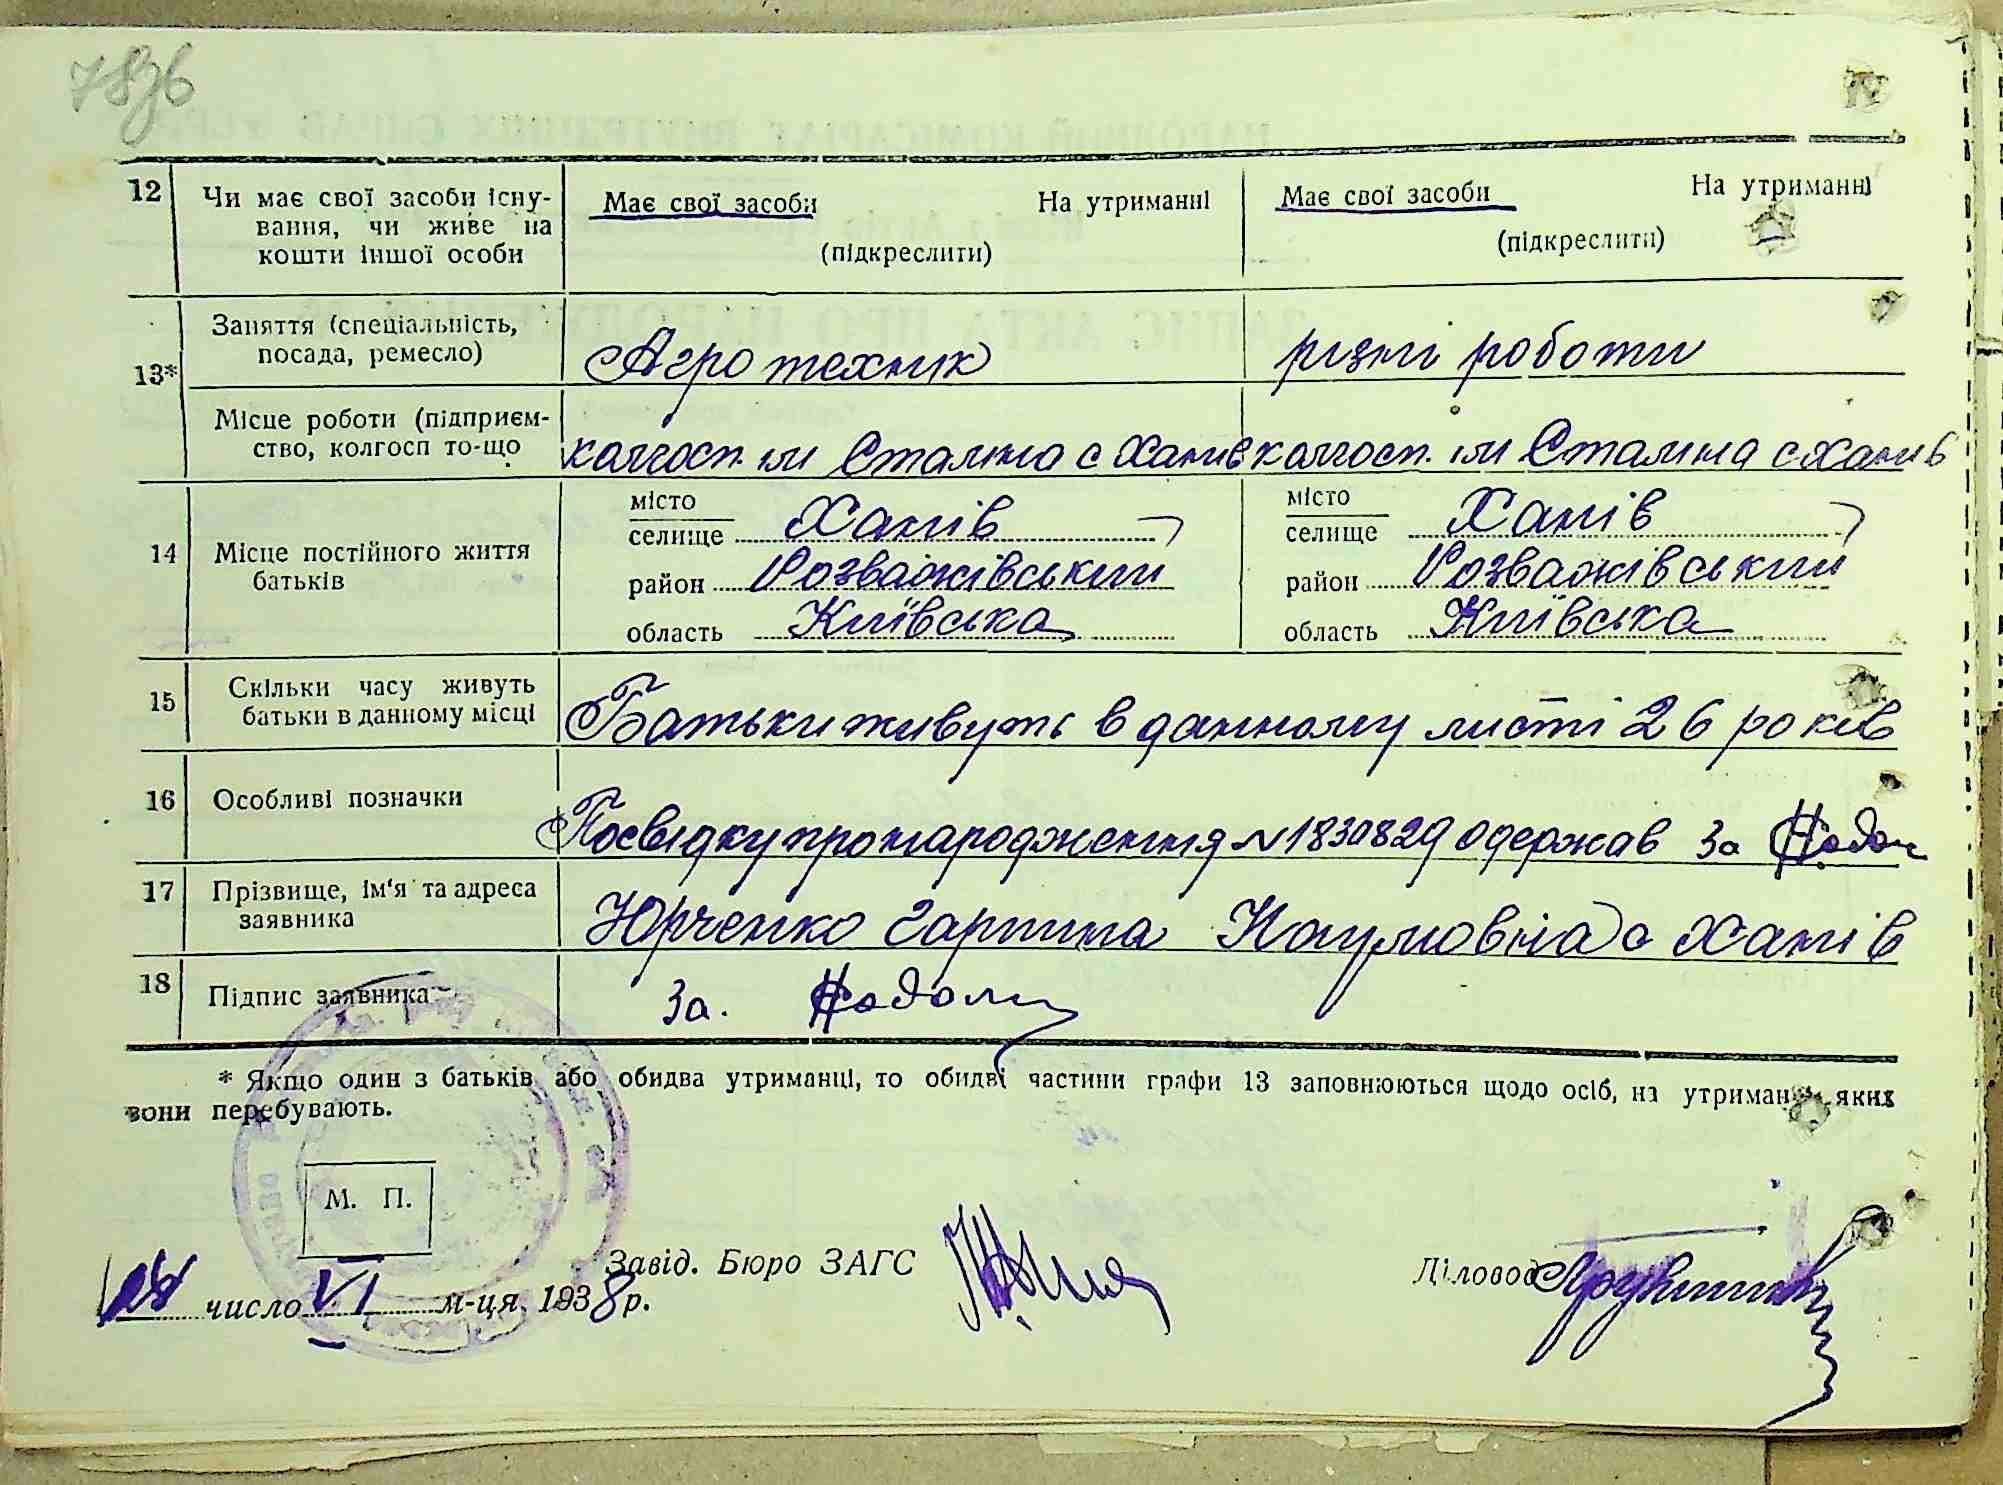 78зб
12 Чи має свої засоби існу- Має свої засоби На утриманні Має свої засоби На утриманні
вання, чи живе на
кошти іншої особи (підкреслити) (підкреслити)
13* Заняття (спеціальність,
посада, ремесло) Агротехнік різні роботи
Місце роботи (підприєм-
ство, колгосп то-що колгосп. ім Сталіна с Ханів колгосп. ім Сталіна с Ханів
14 Місце постійного життя
батьків
місто
селище Ханів
район Розважівський
область Київська
місто
селище Ханів
район Розважівський
область Київська
15 Скільки часу живуть
батьки в данному місці Батьки живуть в данному місті 26 років
16 Особливі позначки Посвідку про народження № 1830829 одержав За
17 Прізвище, ім'я та адреса
заявника Юрченко Гарпина Наумовна с Ханів
18 Підпис заявника За.
* Якщо один з батьків або обидва утриманці, то обидві частини графи 13 заповнюються щодо осіб, на утриманні яких
вони перебувають.
М. П.
Завід. Бюро ЗАГС Діловод
число VI м-ця, 1938 р.